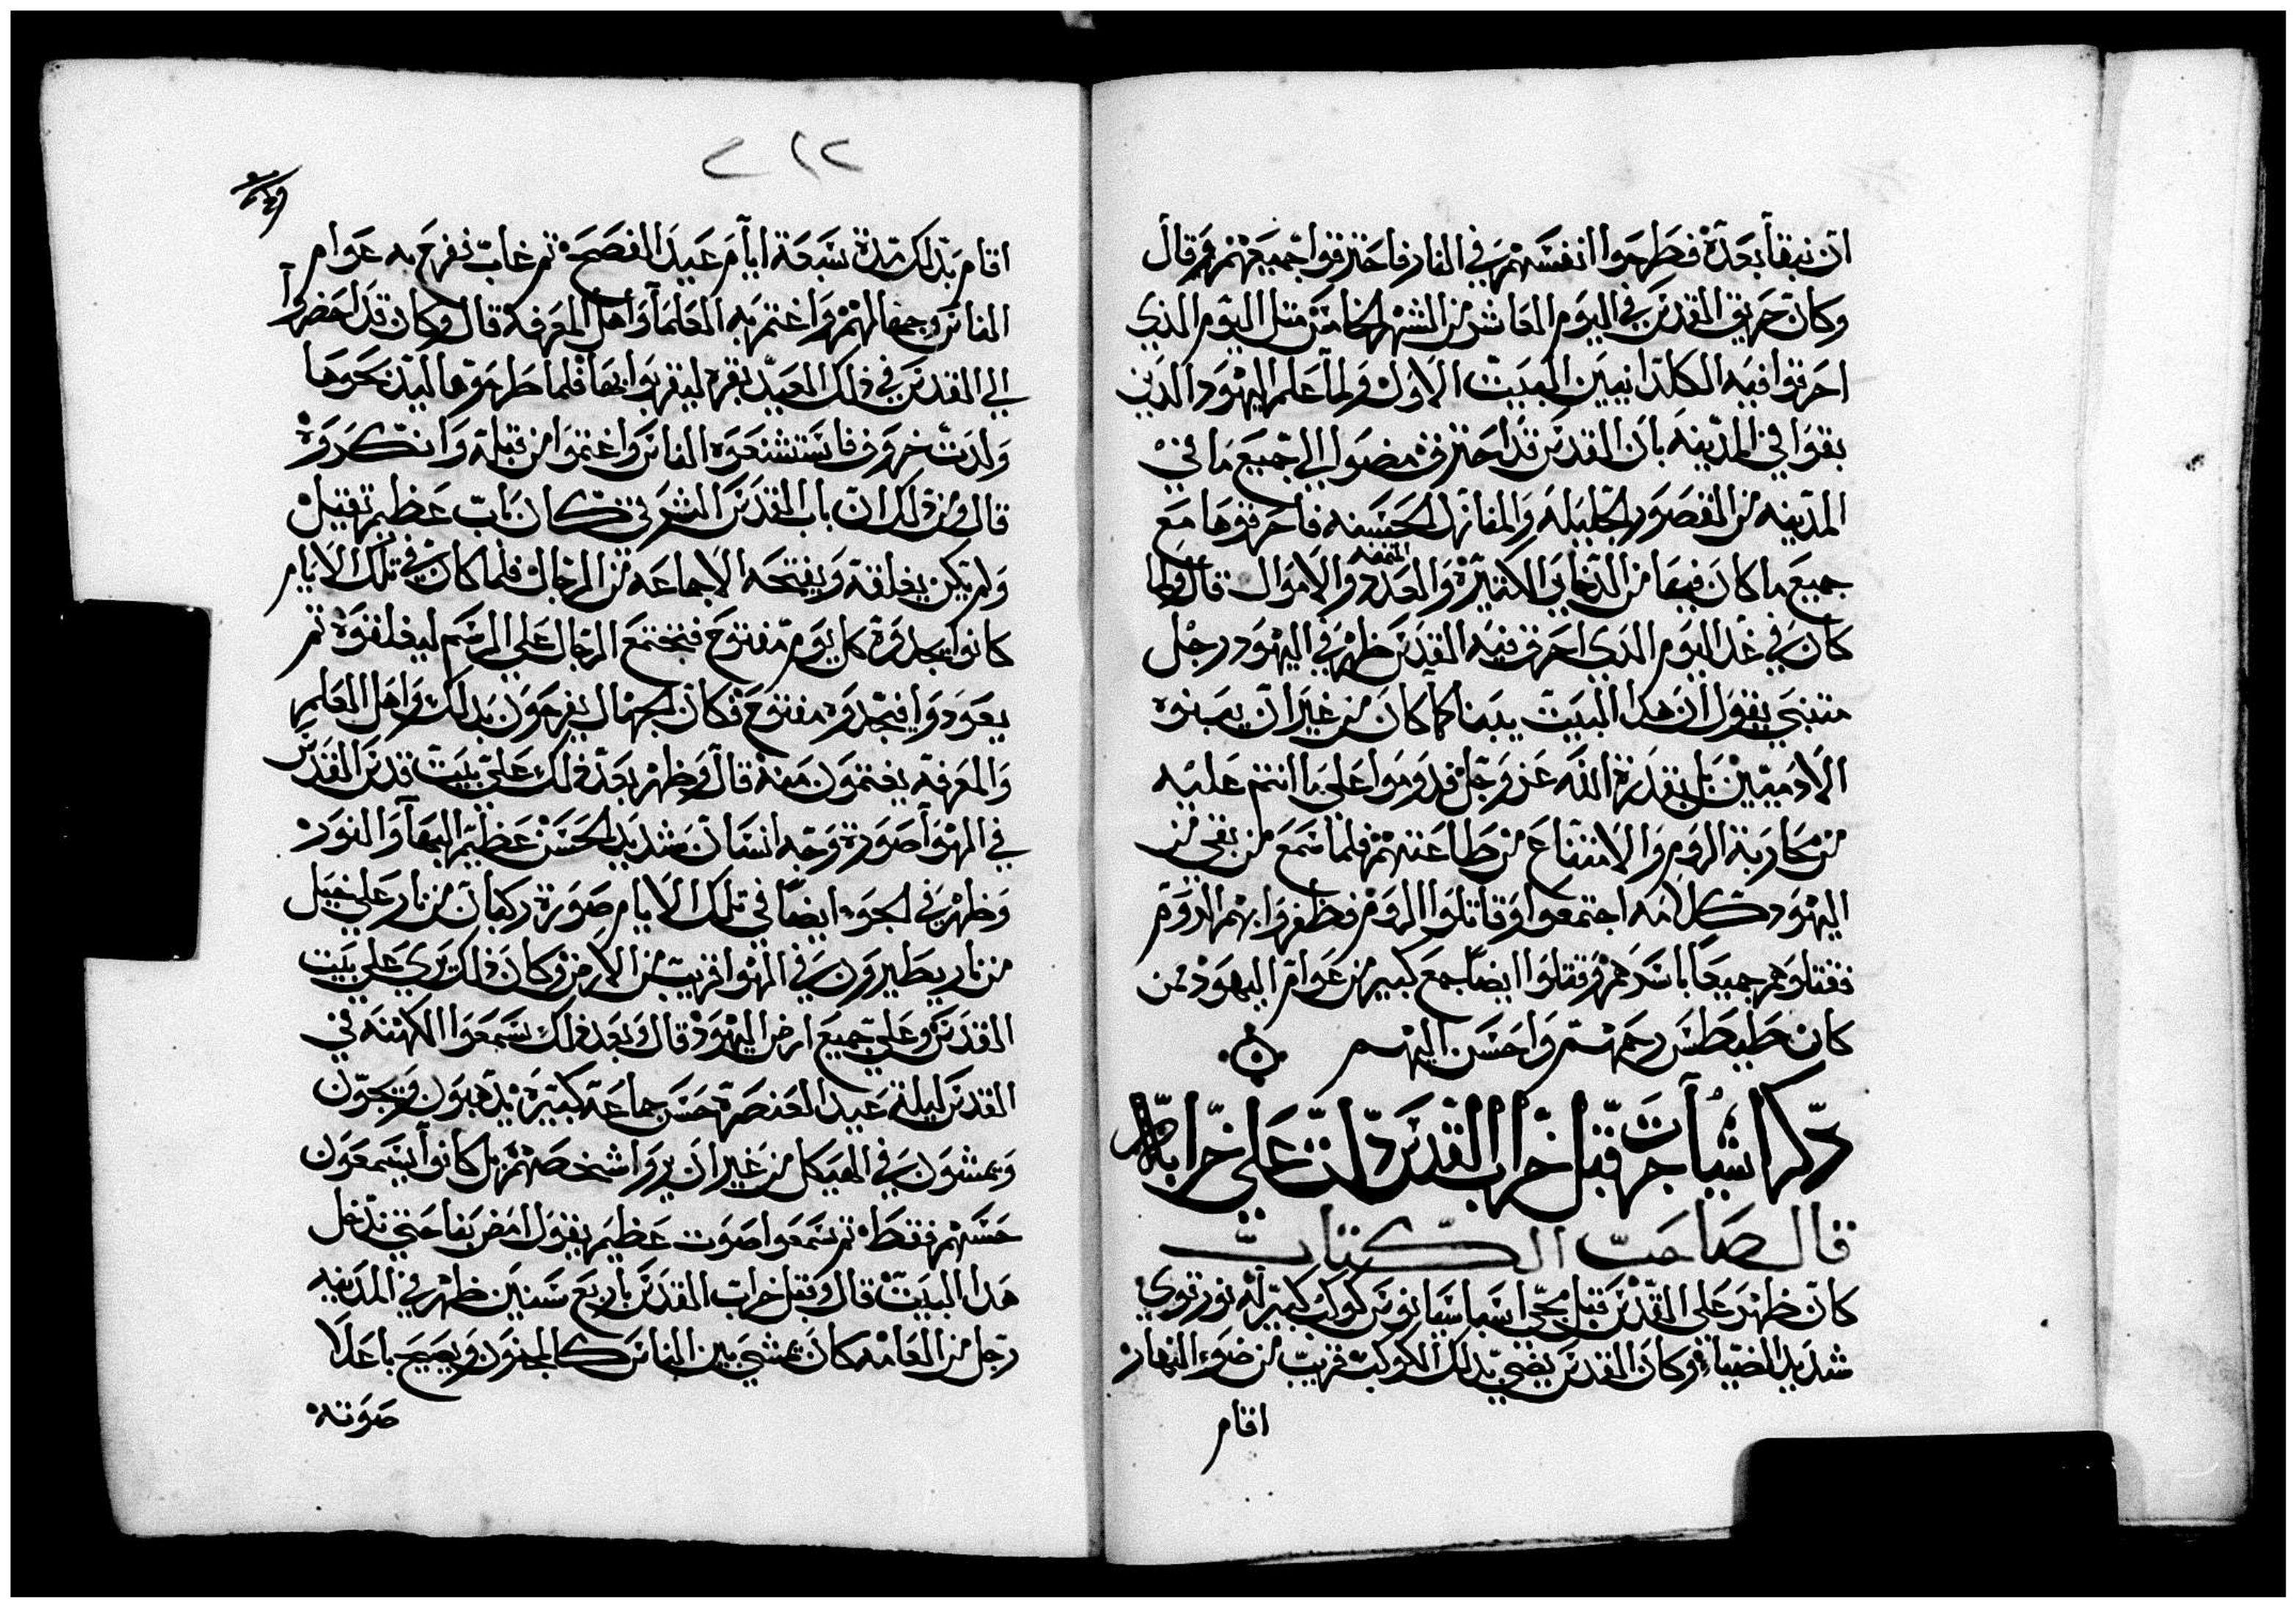 ان نبقا بعده فطرحوا انفسهم في النار فاحترقوا جميعهم ثم قال
وكان حريق القدس في اليوم العاشر من الشهر الخامس مثل اليوم الذي
احرقوا فيه الكلدانيين البيت الاول ولما علم اليهود الذين
بقوا في المدينه بان القدس قد احترق مضوا الي جميع ما في
المدينه من القصور الجليله والمنازل الحسنه فاحرقوها مع
جميع ما كان فيها من الدخاير الكتيرة والعدد المتمنه والاموال قال ولما
كان في غد اليوم الدي احرق فيه القدس ظهر في اليهود رجل
متنبي يقول ان هدا البيت يبنا كما كان من غير ان يبنوه
الادميين بل بقدرة الله عز وجل فدوموا علي ما انتم عليه
من محاربة الروم والامتناع من طاعتهم فلما سمع من بقي من
اليهود كلامه اجتمعوا وقاتلوا الروم فظفروا بهم الروم
فقتلوهم جميعا باسرهم وقتلوا ايضا جمع كبير من عوام اليهود ممن
كان طيطس رحمهم واحسن اليهم
دكر اشيآت جرت قبل خراب القدس دلت علي خرابه
قال صاحب الكتاب
كان ظهر علي القدس قبل مجي اسباسيانوس كوكب كبير له نور قوي
شديد الضياء وكان القدس يضي بدلك الكوكب قريب من ضوء النهار
اقام
٢١٢
اقام بدلك مدة سبعة ايام عيد الفصح ثم غاب ففرح به عوام
الناس وجهالهم واغتم به العلمآ واهل المعرفه قال وكان قد احضروا
الي القدس في دلك العيد بقره ليقربوا بها فلما طرحوها ليدبحوها
ولدت خروف فاستشنعوه الناس واغتموا من قبله وانكروه
قال ومن دلك ان باب القدس الشرقي كان باب عظيم تقيل
ولم يكن يغلقه ويفتحه الا جماعه من الرجال فلما كان في تلك الايام
كانوا يجدوه كل يوم مفتوح فتجتمع الرجال علي الرسم ليغلقوه ثم
يعودوا فيجدوه مفتوح فكان الجهال يفرحون بدلك واهل العلم
والمعرفه يغتمون منه قال وظهر بعد دلك علي بيت قدس القدس
في الهوا صورة وجه انسان شديد الحسن عظيم البهآ والنور
وظهر في الجو ايضا في تلك الايام صورة ركبان من نار علي خيل
من نار يطيرون في الهوا قريب من الارض وكان دلك يري علي بيت
المقدس وعلي جميع ارض اليهود قال وبعد دلك سمعوا الكهنه في
القدس ليلة عيد العنصرة حس جماعه كتيرة يدهبون ويجون
ويمشون في الهيكل من غير ان يروا شخصهم بل كانوا يسمعون
حسهم فقط ثم سمعوا صوت عظيم يقول امض بنا حتي ندخل
هدا البيت قال وقبل خراب القدس باربع سنين ظهر في المدينه
رجل من العامه كان يمشي بين الناس كالمجنون ويصيح باعلا
صوته